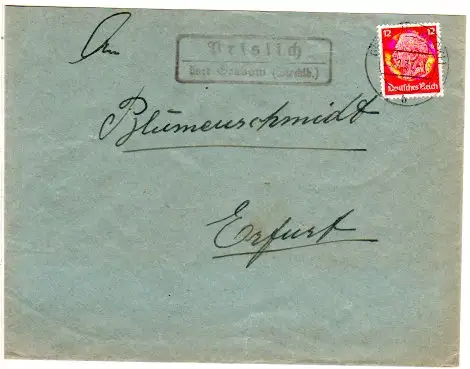 An
Prislich
über Grabow (Mecklb.)
12 12
Deutsches Reich
Blumenschmidt
Erfurt
b